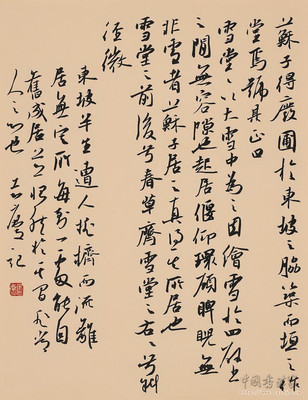 蘇子得廢圃於東坡之脇築而垣之作
堂焉號其正曰
雪堂以大雪中為之因繪雪於四壁
之間無容隙也起居偃仰環顧睥睨無
非雪者蘇子居之真得其所居也
雪堂之前後兮春草齊雪堂之左右兮斜
徑微
東坡半生遭人排擠而流離
居無定所每到一處能自
人之心也 記